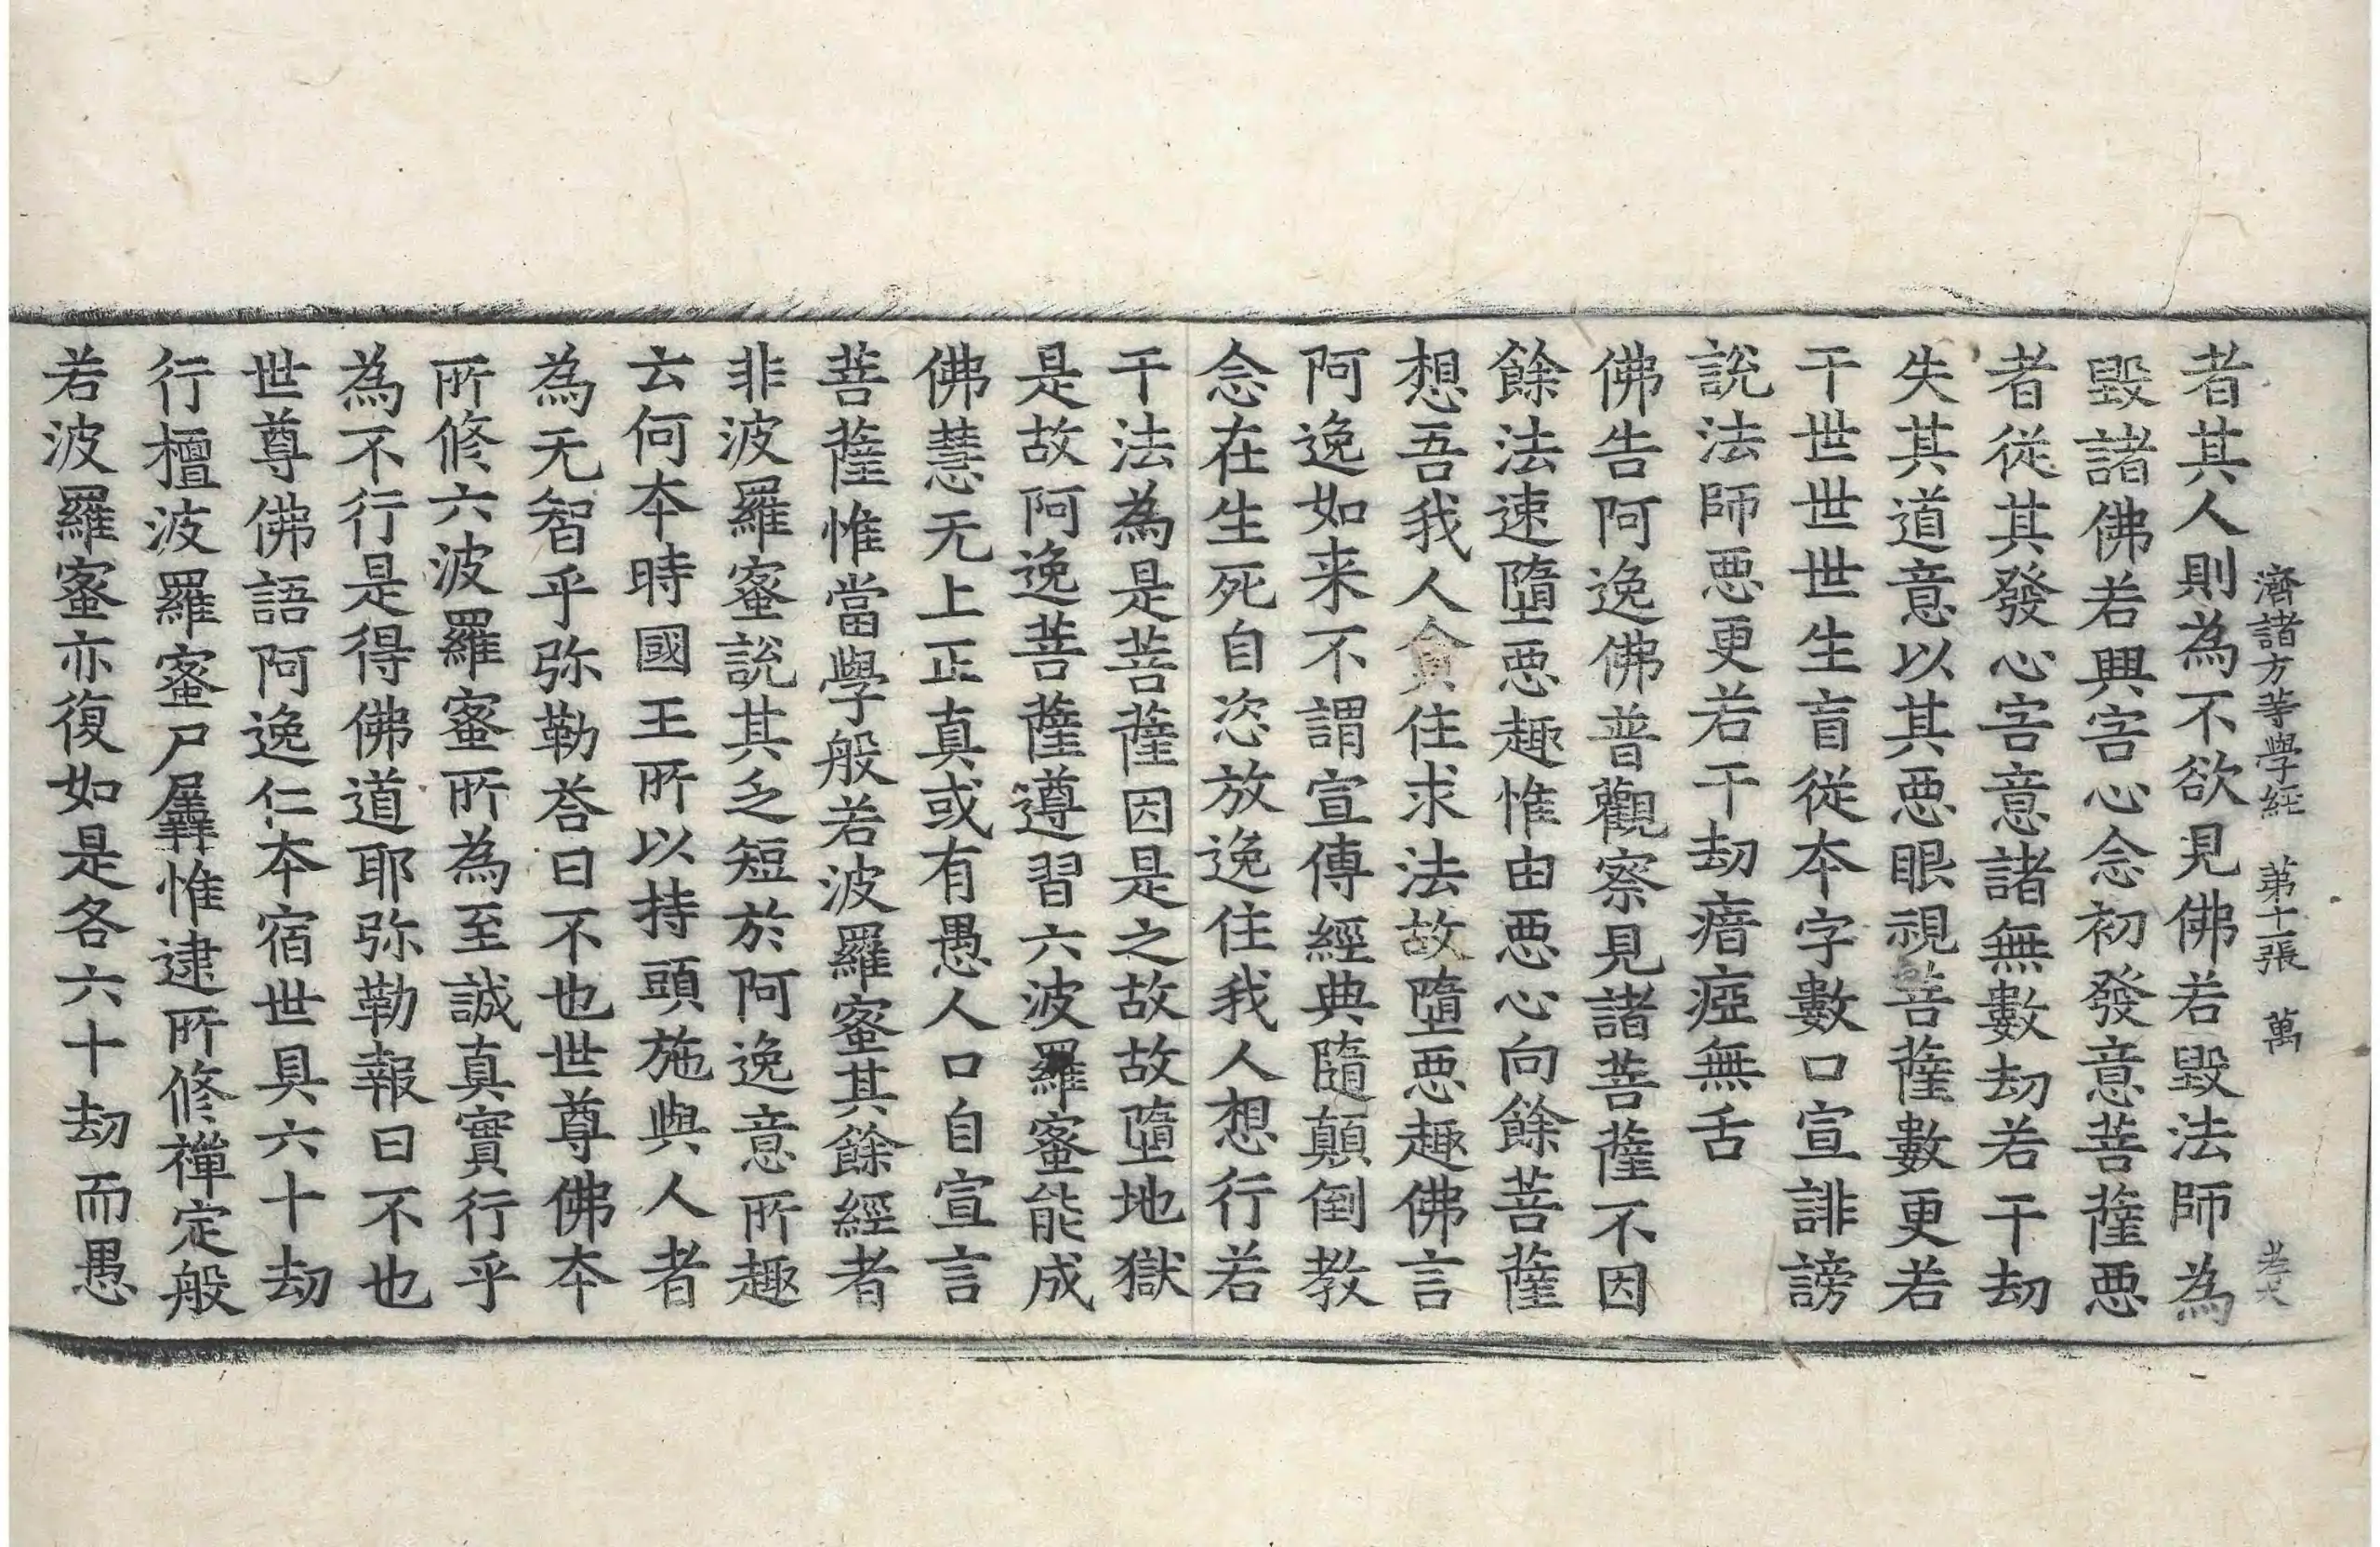 濟諸方等學經 第十一張 萬 孝大
者其人則為不欲見佛若毀法師為
毀諸佛若興害心念初發意菩薩惡
者從其發心害意諸無數劫若干劫
失其道意以其惡眼視菩薩數更若
干世世世生盲從本字數口宣誹謗
說法師惡更若干劫瘖瘂無舌
佛告阿逸佛普觀察見諸菩薩不因
餘法速墮惡趣惟由惡心向餘菩薩
想吾我人貪住求法故墮惡趣佛言
阿逸如来不謂宣傳經典隨顛倒教
念在生死自恣放逸住我人想行若
干法為是菩薩因是之故故墮地獄
是故阿逸菩薩遵習六波羅蜜能成
佛慧无上正真或有愚人口自宣言
菩薩惟當學般若波羅蜜其餘經者
非波羅蜜說其乏短於阿逸意所趣
云何本時國王所以持頭施與人者
為无智乎弥勒荅曰不也世尊佛本
所修六波羅蜜所為至誠真實行乎
為不行是得佛道耶弥勒報曰不也
世尊佛語阿逸仁本宿世具六十劫
行檀波羅蜜尸羼惟逮所修禪定般
若波羅蜜亦復如是各六十劫而愚